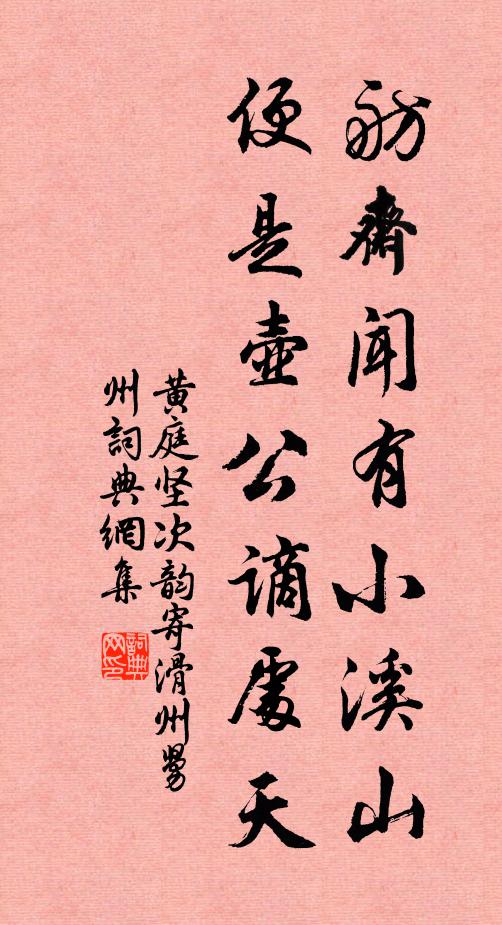 舫齋聞有小溪山
便是壺公謫處天
黄庭坚次韵寄滑州舅
州詞典網集
詞典网印